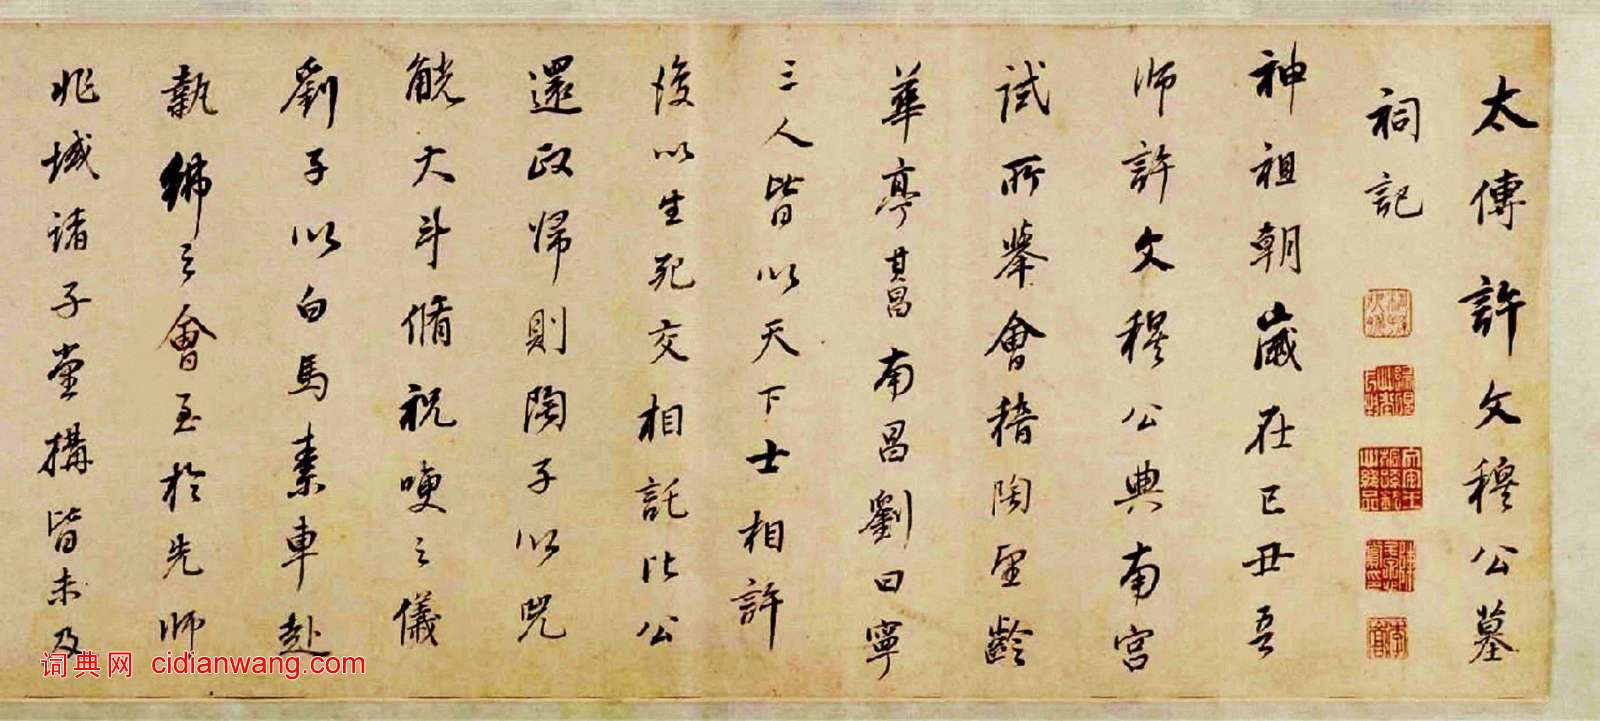 太傅許文穆公墓
祠記
神祖朝歲在己丑吾
師許文穆公典南宮
試所舉會稽陶望齡
華亭其昌南昌劉曰寧
三人皆以天下士相許
後以生死交相託比公
還政歸則陶子以兕
觥大斗脩祝哽之儀
劉子以白馬素車赴
執紼之會至於先師
兆域諸子堂構皆未及
词典网 cidianwang.com